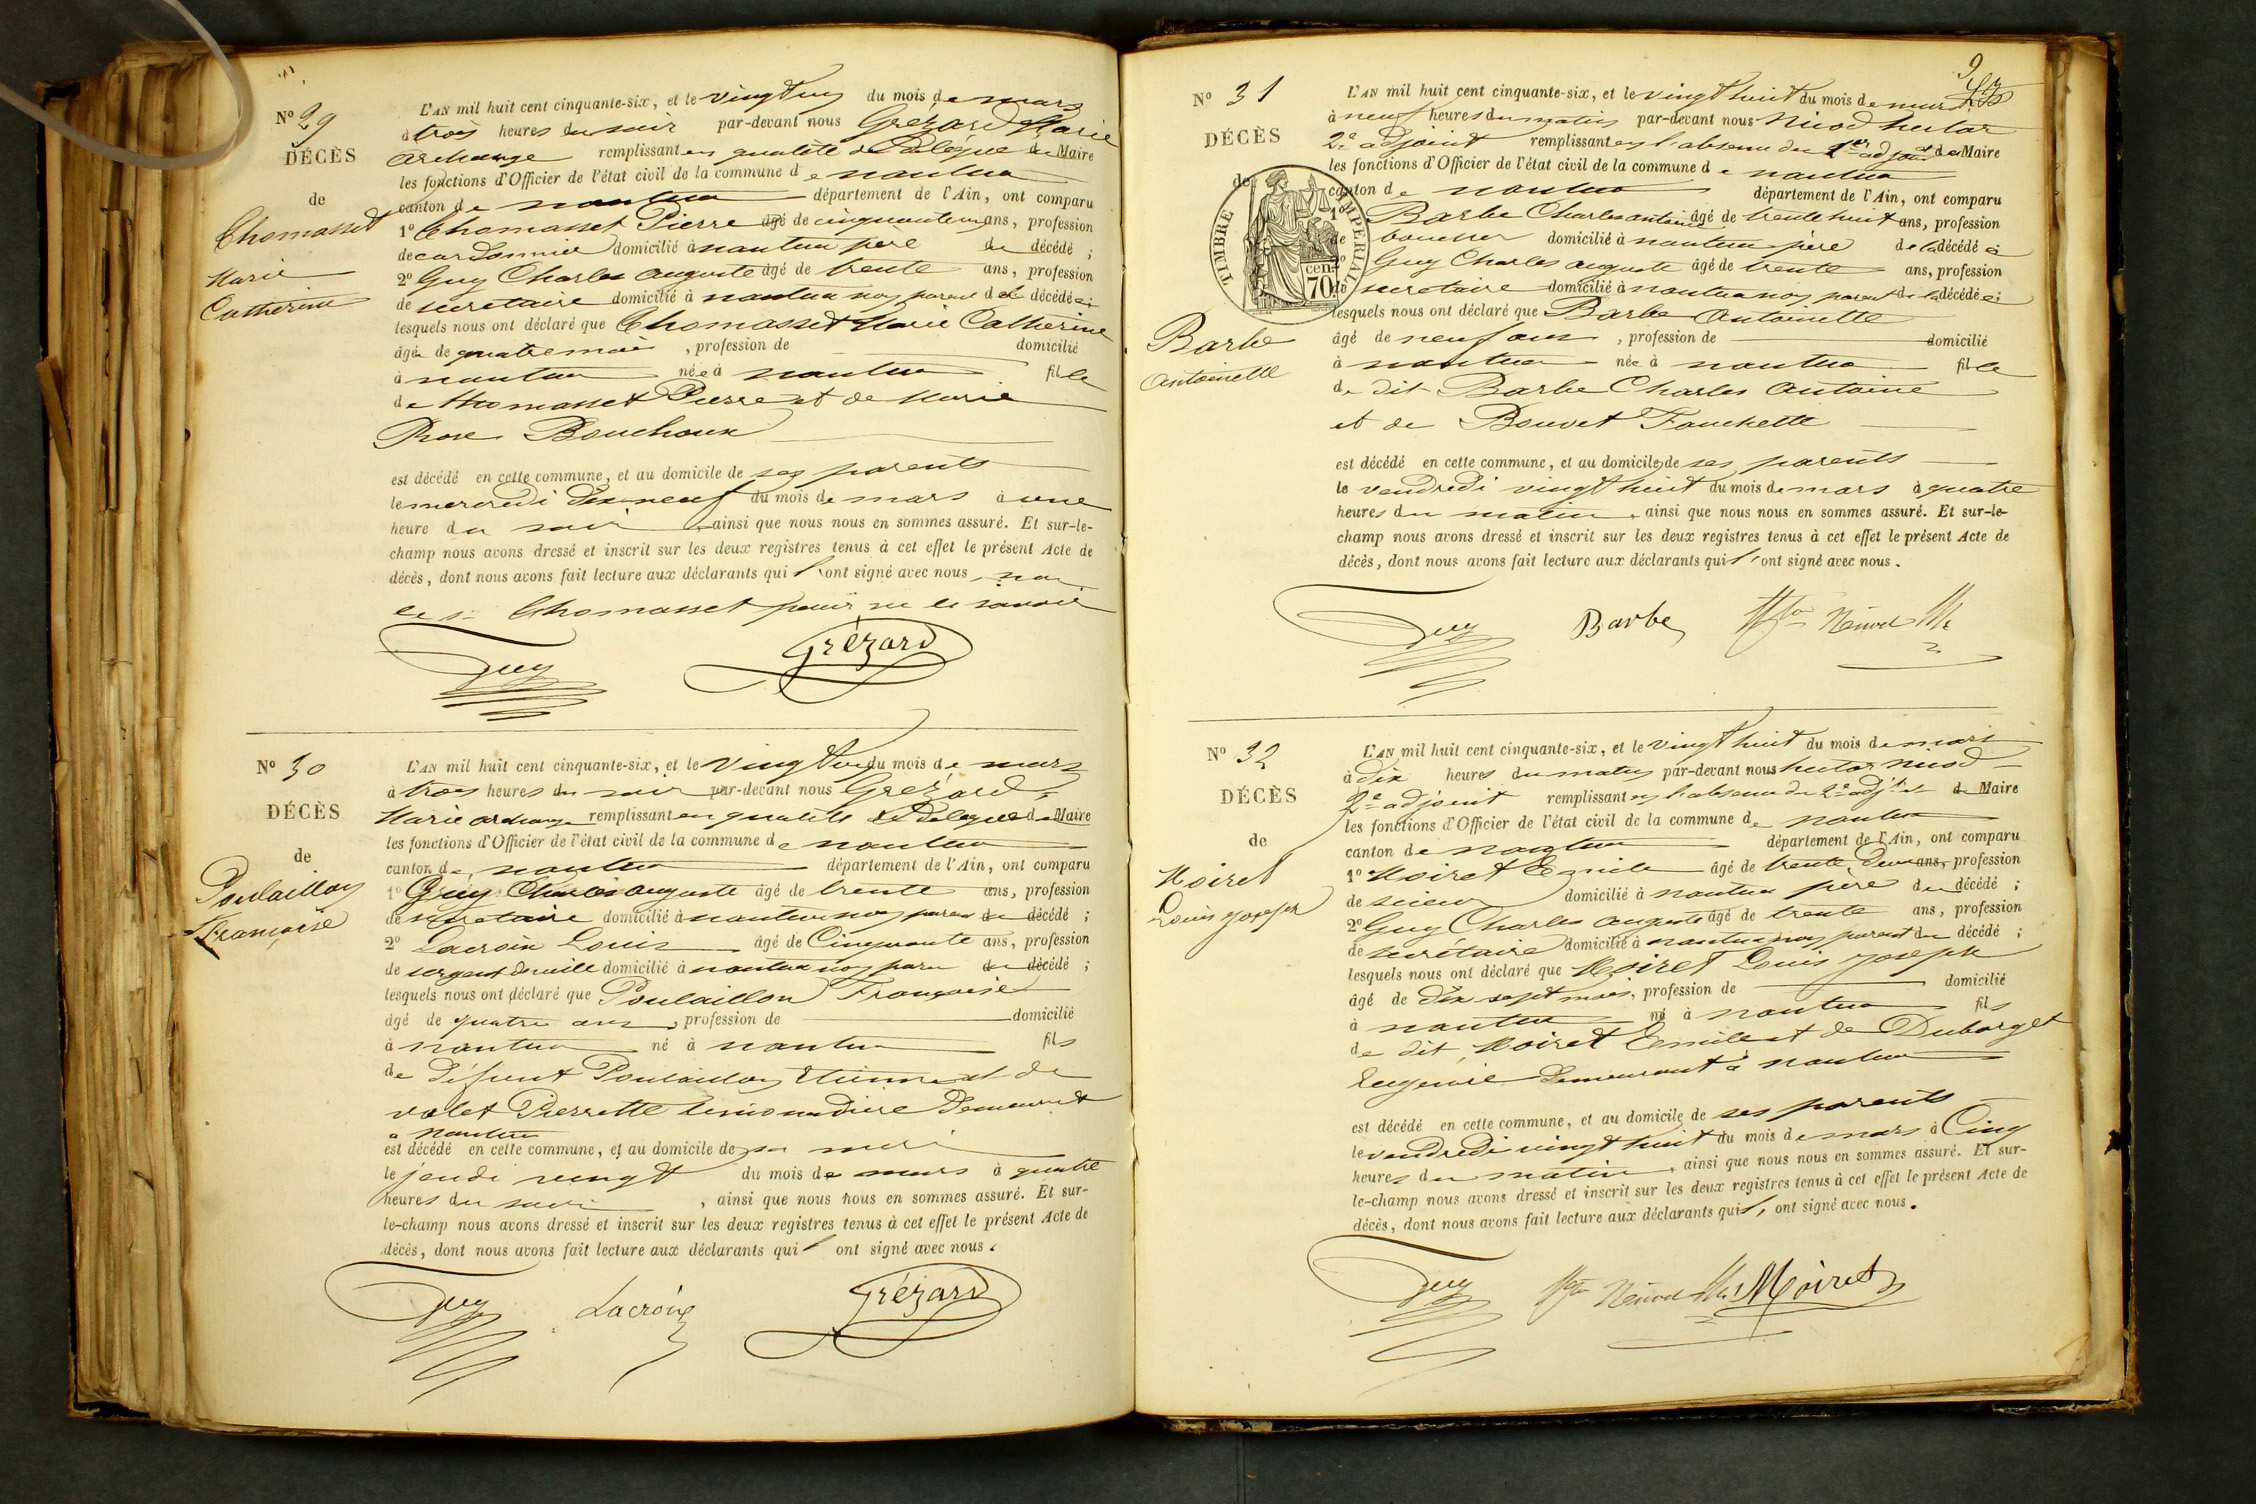 N° 29
DÉCÈS
de
Thomasset
Marie
Catherine
L'AN mil huit cent cinquante-six, et le vingt un du mois de mars
à trois heures du soir par-devant nous Grézard Marie
archange remplissant en qualité de Délégué du Maire
les fonctions d'Officier de l'état civil de la commune de nantua
canton de nantua département de l'Ain, ont comparu
1° Thomasset Pierre âgé de cinquante un ans, profession
de cordonnier domicilié à nantua père du décédé ;
2° Guy Charles auguste âgé de trente ans, profession
de secretaire domicilié à nantua non parent de la décédée ;
lesquels nous ont déclaré que Thomasset Marie Catherine
âgée de quatre mois , profession de domicilié
à nantua née à nantua fille
de thomasset Pierre et de Marie
Rose Bouchoux
est décédé en cette commune, et au domicile de ses parents
le mercredi dix neuf du mois de mars à une
heure du soir , ainsi que nous nous en sommes assuré. Et sur-le-
champ nous avons dressé et inscrit sur les deux registres tenus à cet effet le présent Acte de
décès, dont nous avons fait lecture aux déclarants qui l'ont signé avec nous, non
le s. Thomasset pour ne le savoir
Guy Grézard
N° 30
DÉCÈS
de
Poulaillon
Françoise
L'AN mil huit cent cinquante-six, et le vingt un du mois de mars
à trois heures du soir par-devant nous Grézard
Marie archange remplissant en qualité de Délégué du Maire
les fonctions d'Officier de l'état civil de la commune de nantua
canton de nantua département de l'Ain, ont comparu
1° Guy Charles auguste âgé de trente ans, profession
de secretaire domicilié à nantua non parent du décédé ;
2° Lacroix Louis âgé de Cinquante ans, profession
de sergent de ville domicilié à nantua non paren du décédé ;
lesquels nous ont déclaré que Poulaillon Françoise
âgé de quatre ans , profession de domicilié
à nantua né à nantua fils
de défunt Poulaillon Etienne et de
volet Pierrette limonadière demeurant
à Nantua
est décédé en cette commune, et au domicile de sa mère
le jeudi vingt du mois de mars à quatre
heures du soir , ainsi que nous nous en sommes assuré. Et sur-
le-champ nous avons dressé et inscrit sur les deux registres tenus à cet effet le présent Acte de
décès, dont nous avons fait lecture aux déclarants qui l ont signé avec nous.
Guy Lacroix Grézard
9
N° 31
DÉCÈS
de
TIMBRE IMPÉRIAL
70 cen.
Barbe
Antoinette
L'AN mil huit cent cinquante-six, et le vingt huit du mois de mars
à neuf heures du matin par-devant nous Nicod hector
2e adjoint remplissant en l'absence du 1er adjoint de Maire
les fonctions d'Officier de l'état civil de la commune de nantua
canton de nantua département de l'Ain, ont comparu
1° Barbe Charles antoine âgé de trente huit ans, profession
de boucher domicilié à nantua père de la décédée
2° Guy Charles auguste âgé de trente ans, profession
de secretaire domicilié à nantua non parent de la décédée ;
lesquels nous ont déclaré que Barbe Antoinette
âgé de neuf ans , profession de domicilié
à nantua née à nantua fille
de dit Barbe Charles Antoine
et de Bouvet Fanchette
est décédé en cette commune, et au domicile de ses parents
le vendredi vingt huit du mois de mars à quatre
heures du matin , ainsi que nous nous en sommes assuré. Et sur-le-
champ nous avons dressé et inscrit sur les deux registres tenus à cet effet le présent Acte de
décès, dont nous avons fait lecture aux déclarants qui l'ont signé avec nous.
Guy Barbe
N° 32
DÉCÈS
de
Moiret
Louis joseph
L'AN mil huit cent cinquante-six, et le vingt huit du mois de mars
à dix heures du matin par-devant nous hector nicod
2e adjoint remplissant en l'absence du 2e adjt du Maire
les fonctions d'Officier de l'état civil de la commune de nantua
canton de nantua département de l'Ain, ont comparu
1° Moiret Emile âgé de trente deux ans, profession
de scieur domicilié à nantua père du décédé ;
2° Guy Charles auguste âgé de trente ans, profession
de secrétaire domicilié à nantua non parent du décédé ;
lesquels nous ont déclaré que Moiret Louis joseph
âgé de dix sept mois, profession de domicilié
à nantua né à nantua fils
de dit Moiret Emile et de Duborget
Eugenie demeurant à nantua
est décédé en cette commune, et au domicile de ses parents
le vendredi vingt huit du mois de mars à Cinq
heures du matin , ainsi que nous nous en sommes assuré. Et sur-
le-champ nous avons dressé et inscrit sur les deux registres tenus à cet effet le présent Acte de
décès, dont nous avons fait lecture aux déclarants qui l, ont signé avec nous.
Guy Moiret